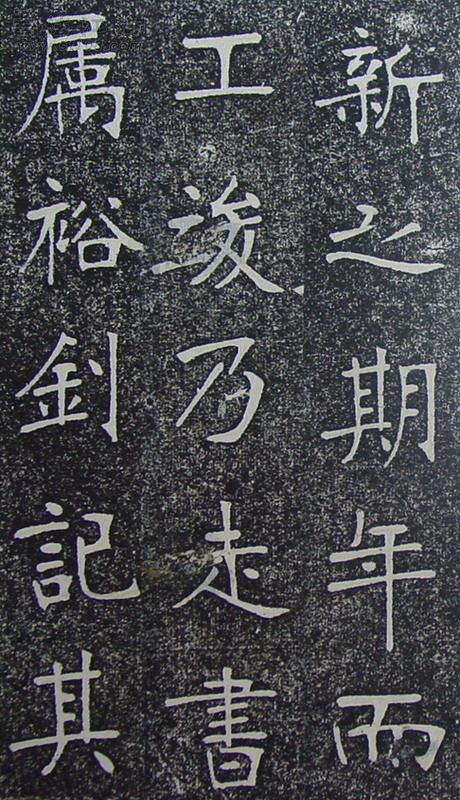 新之期年而
工竣乃走書
属裕釗記其